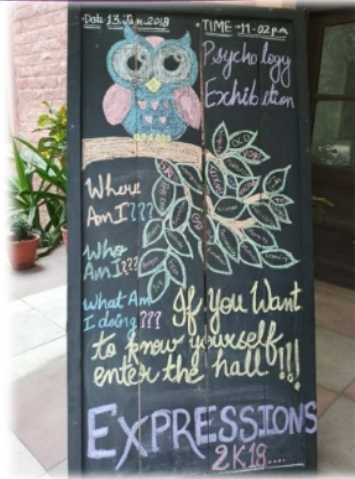 Date 13.Jan.2018
TIME - 11-02 p.m
Psychology
Exhibition
Where
Am I???
Who
Am I???
What Am
I doing???
If You Want
to know yourself
enter the hall!!!
EXPRESSIONS
2K18....